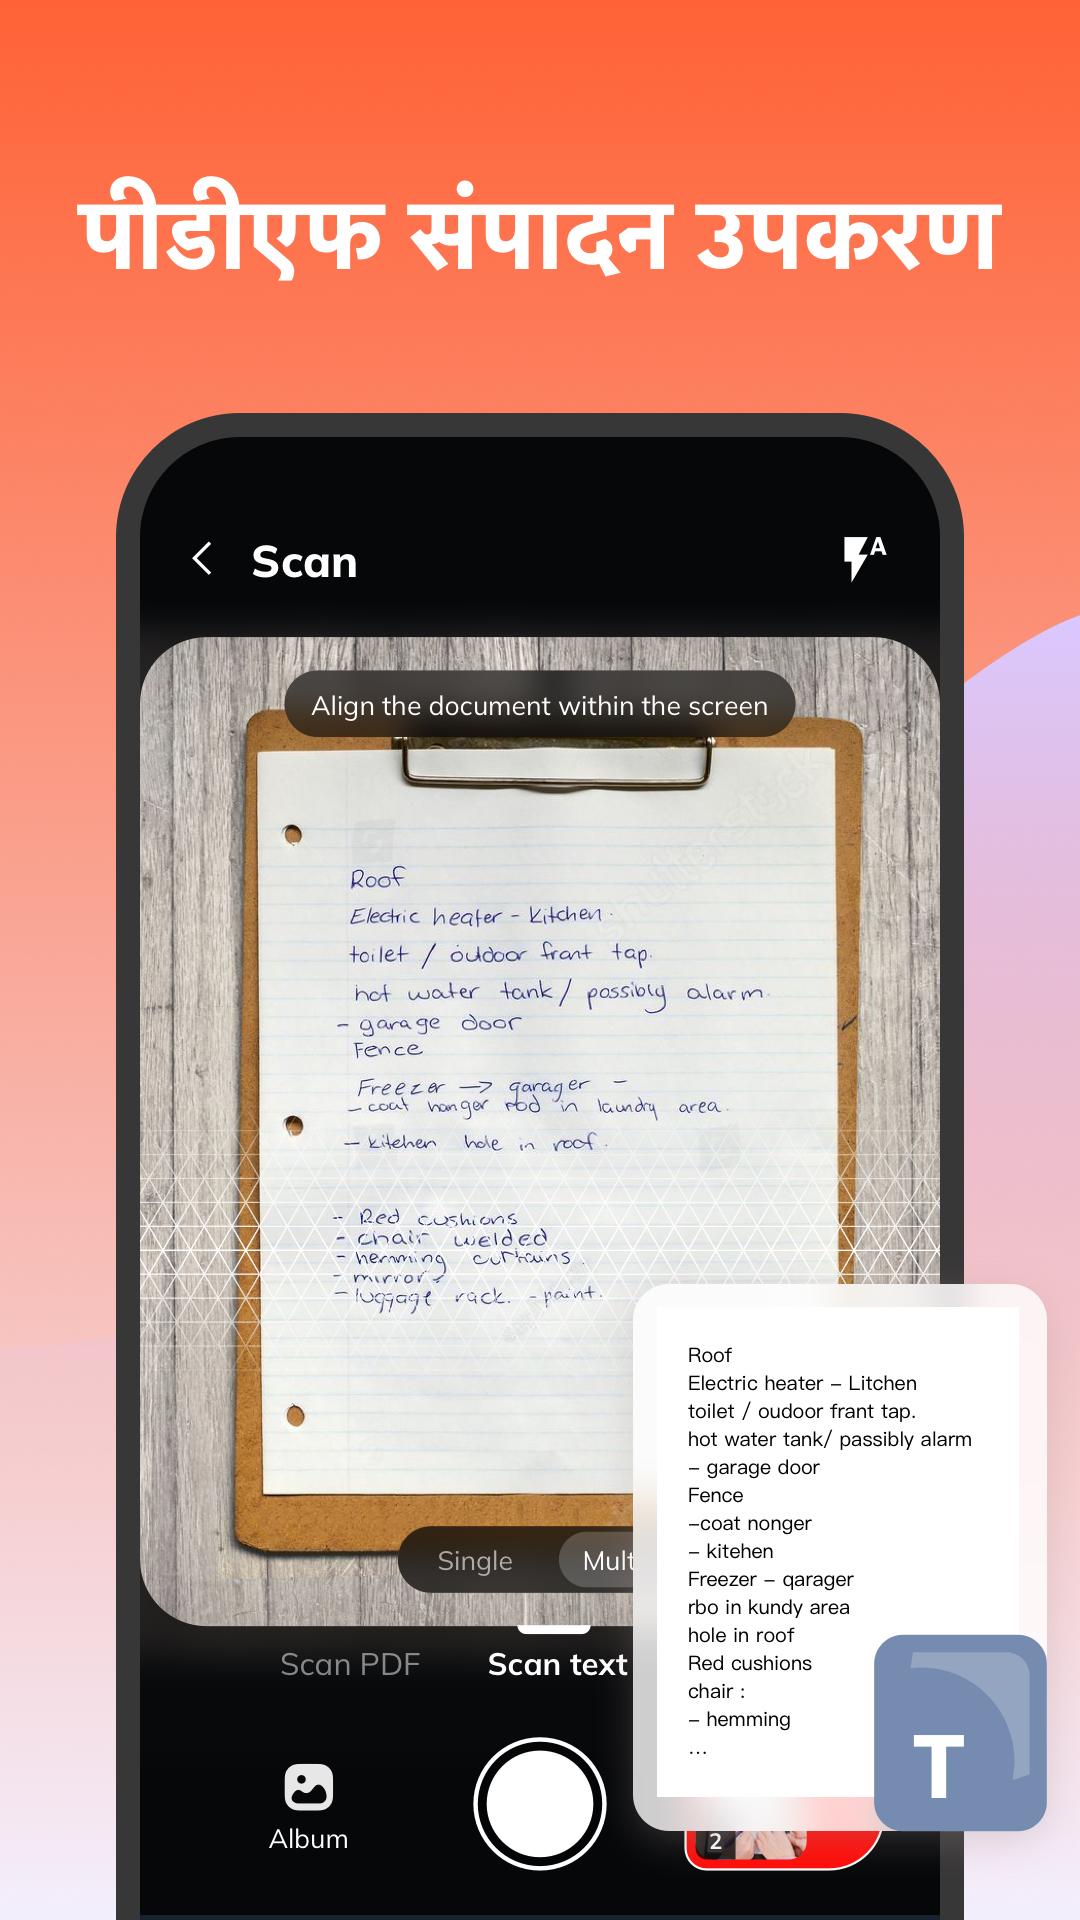 पीडीएफ संपादन उपकरण
Scan
A
Align the document within the screen
Roof
Electric heater - Kitchen.
toilet / outdoor frant tap.
hot water tank / possibly alarm.
- garage door
Fence
Freezer → garager -
- coat hanger rod in laundry area.
- kitchen hole in roof.
- Red cushions
- chair welded
- hemming curtains.
- mirror
- luggage rack. - paint.
Roof
Electric heater – Litchen
toilet / oudoor frant tap.
hot water tank/ passibly alarm
– garage door
Fence
–coat nonger
– kitehen
Freezer – qarager
rbo in kundy area
hole in roof
Red cushions
chair :
– hemming
...
T
Single
Mult
Scan PDF
Scan text
Album
2